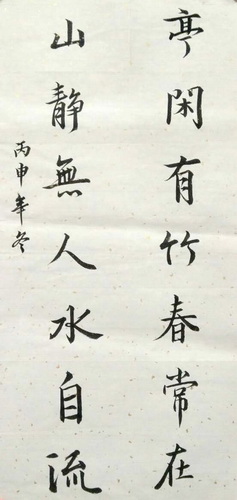 亭閑有竹春常在
山靜無人水自流
丙申年冬